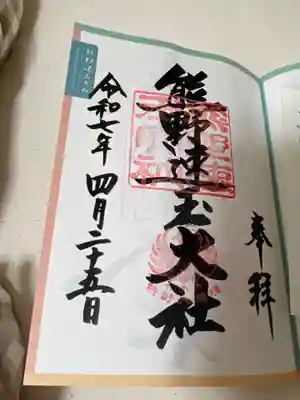 奉拝
熊野速玉大社
令和七年 四月二十五日